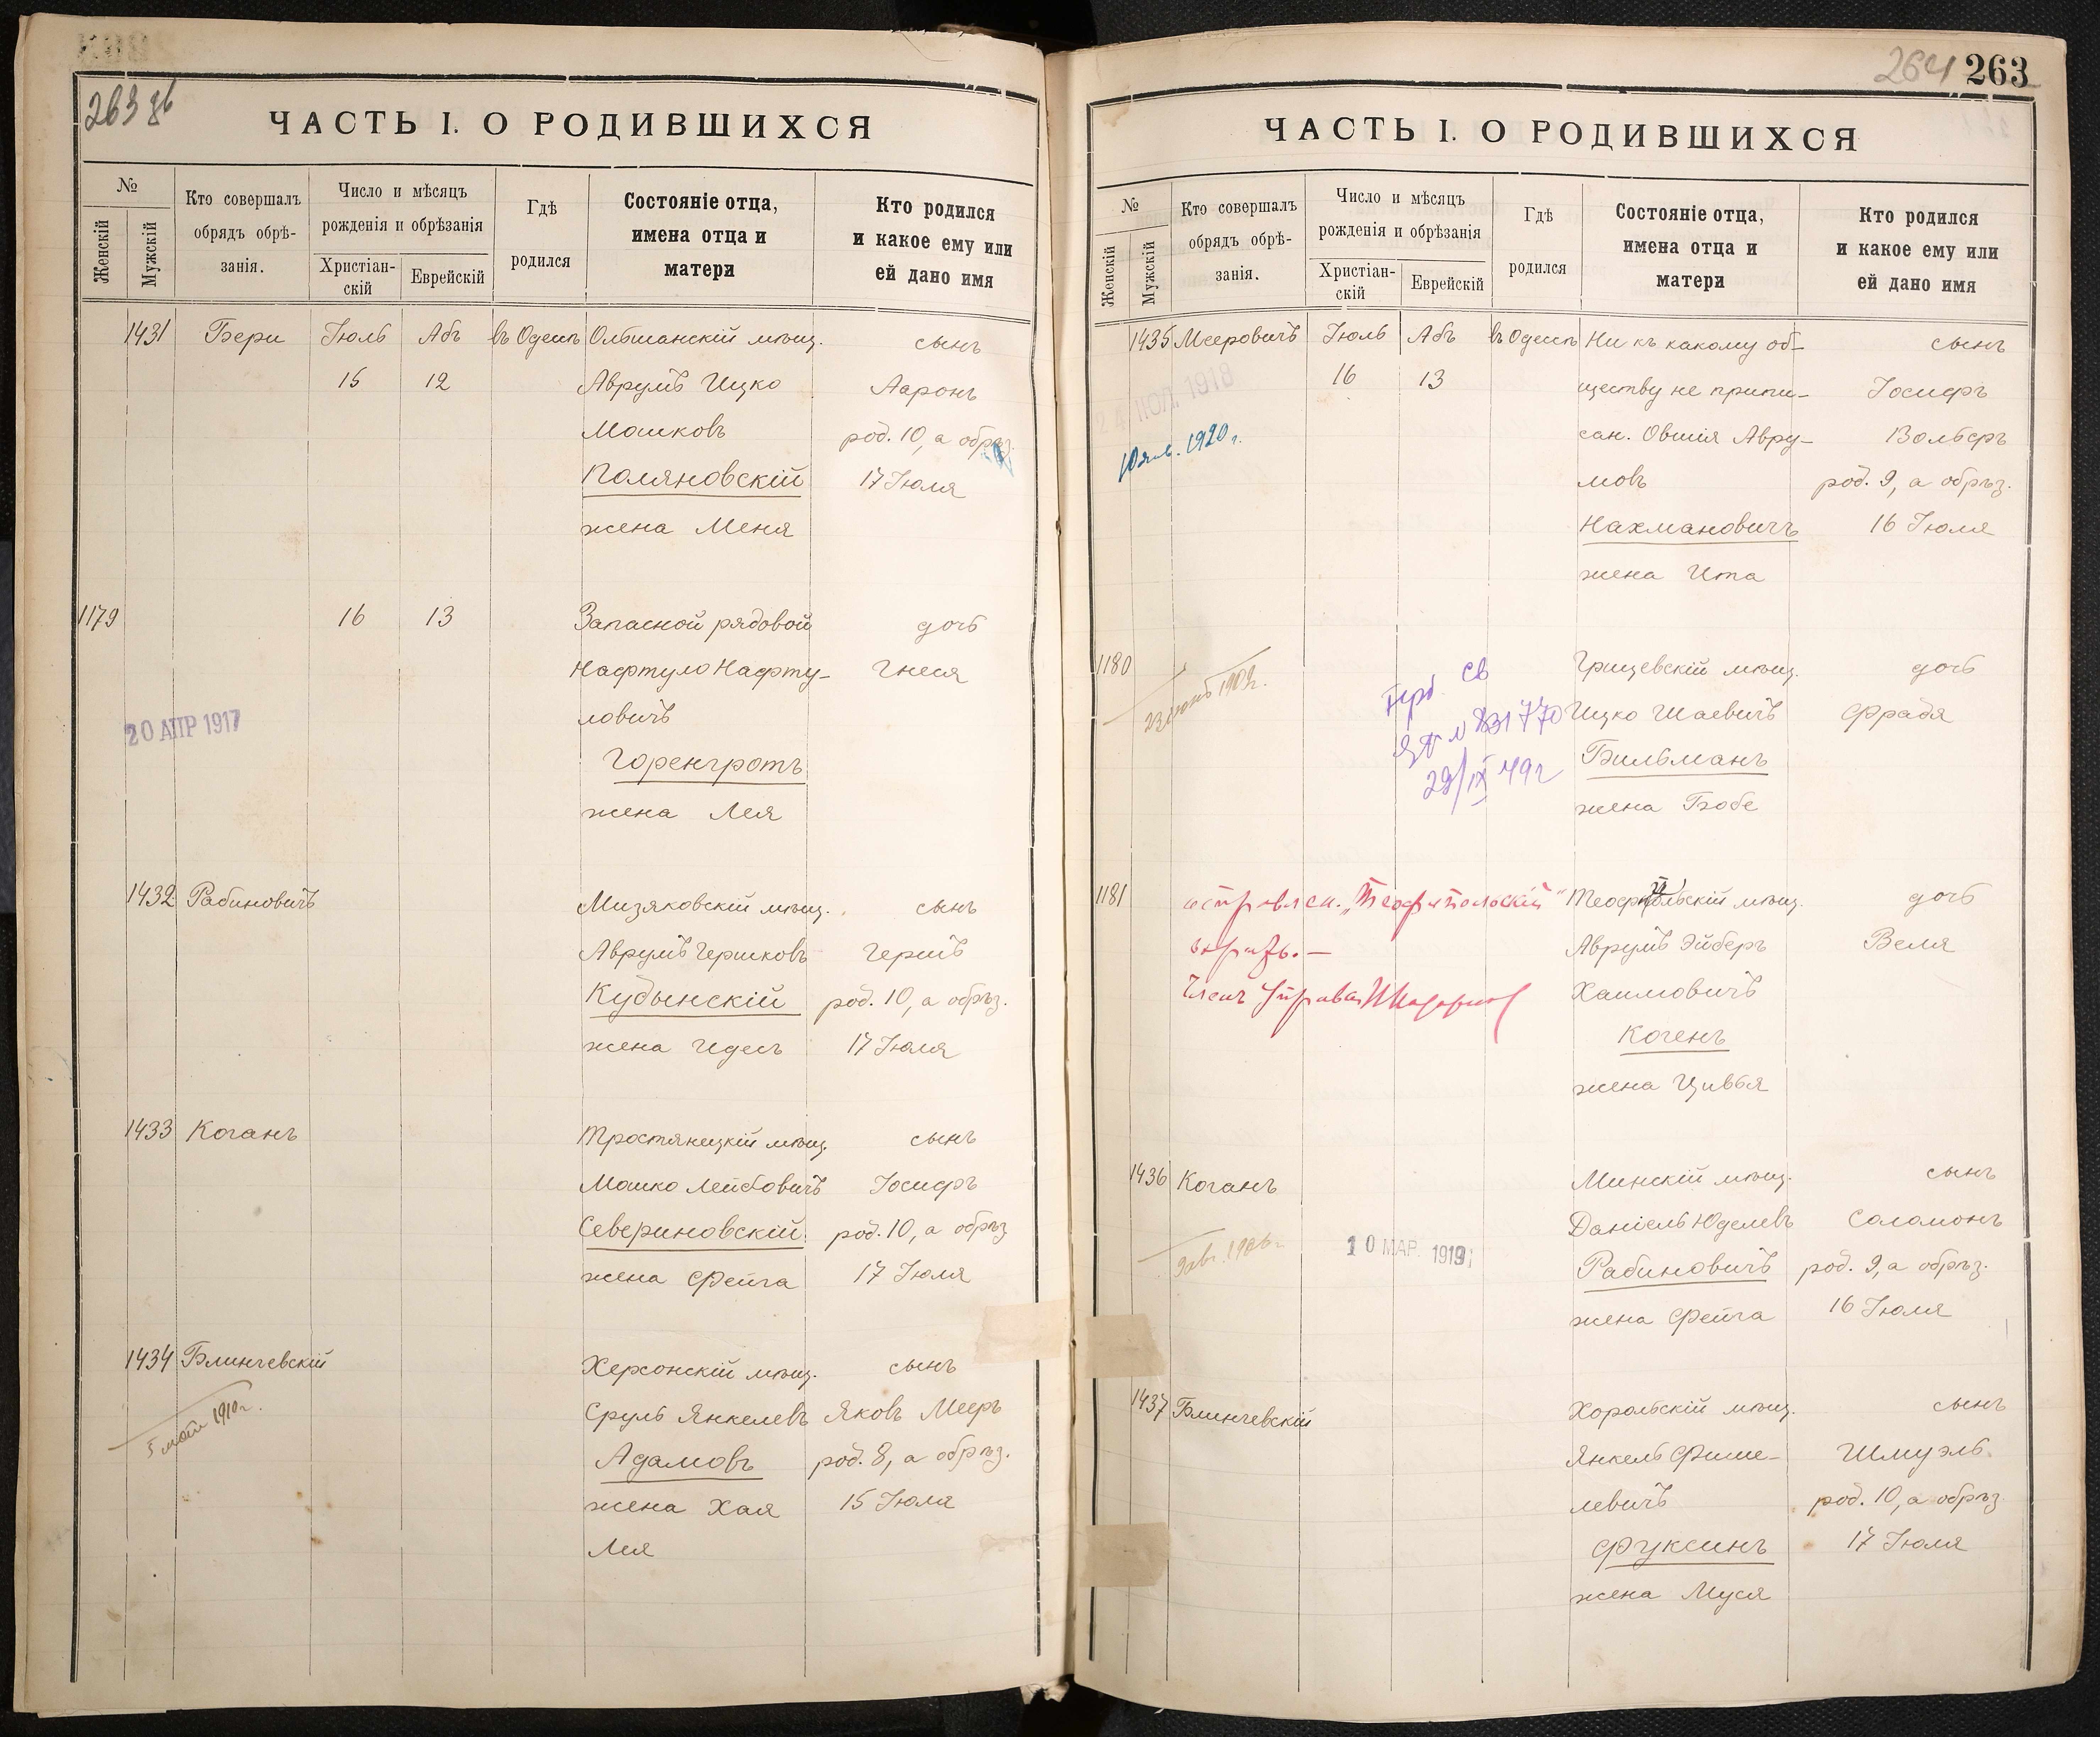 263 об
ЧАСТЬ I. О РОДИВШИХСЯ
№
Женскій
Мужскій
Кто совершалъ
обрядъ обрѣ-
занія.
Число и мѣсяцъ
рожденія и обрѣзанія
Христіан-
скій
Еврейскій
Гдѣ
родился
Состояніе отца,
имена отца и
матери
Кто родился
и какое ему или
ей дано имя
1431 Бери Іюль Абъ въ Одессѣ Ольшанскій мѣщ. сынъ
15 12 Аврумъ Ицко Ааронъ
Мошковъ род. 10, а обрѣз.
Поляновскій 17 Іюля
жена Меня
1179 16 13 Запасной рядовой дочь
Нафтуло Нафту- Гнеся
ловичъ
20 АПР 1917
Горенгротъ
жена Лея
1432 Рабиновичъ Мизяковскій мѣщ. сынъ
Аврумъ Гершковъ Гершъ
Кудынскій род. 10, а обрѣз.
жена Идесъ 17 Іюля
1433 Коганъ Тростянецкій мѣщ. сынъ
Мошко Лейбовичъ Іосифъ
Севериновскій род. 10, а обрѣз
жена Фейга 17 Іюля
1434 Блинчевскій Херсонскій мѣщ. сынъ
5 мая 1910 г. Сруль Янкелевъ Яковъ Мееръ
Адамовъ род. 8, а обрѣз.
жена Хая 15 Іюля
Лея
264 263
ЧАСТЬ I. О РОДИВШИХСЯ
№
Женскій
Мужскій
Кто совершалъ
обрядъ обрѣ-
занія.
Число и мѣсяцъ
рожденія и обрѣзанія
Христіан-
скій
Еврейскій
Гдѣ
родился
Состояніе отца,
имена отца и
матери
Кто родился
и какое ему или
ей дано имя
1435 Мееровичъ Іюль Абъ въ Одессѣ Ни къ какому об- сынъ
16 13 ществу не припи- Іосифъ
1918
10 янв. 1920 г. сан. Овшія Авру- Вольфъ
мовъ род. 9, а обрѣз.
Нахмановичъ 16 Іюля
жена Ита
1180 Грицевскій мѣщ. дочь
23 1909 г. св Ицко Шаевичъ Фрадя
29/IX 49 г Бильманъ
жена Бобе
1181 "Теофипольскій" Теофипольскій мѣщ. дочь
Аврумъ Эйберъ Веля
Членъ Управы Хаимовичъ
Когенъ
жена Цивья
1436 Коганъ Минскій мѣщ. сынъ
Даніель Юделевъ Саломонъ
10 МАР. 1919 Рабиновичъ род. 9, а обрѣз.
жена Фейга 16 Іюля
1437 Блинчевскій Хорольскій мѣщ. сынъ
Янкель Фише- Шмуэль
левичъ род. 10, а обрѣз
Фуксинъ 17 Іюля
жена Муся